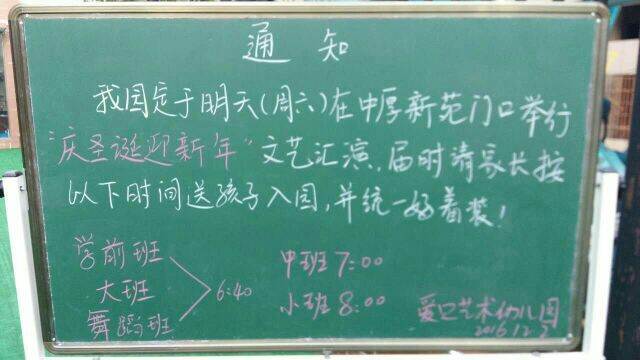 通 知
我园定于明天(周六)在中厚新苑门口举行
"庆圣诞迎新年"文艺汇演,届时请家长按
以下时间送孩子入园,并统一好着装!
学前班
大班
舞蹈班
6:40
中班 7:00
小班 8:00
艺术幼儿园
2016.12.2